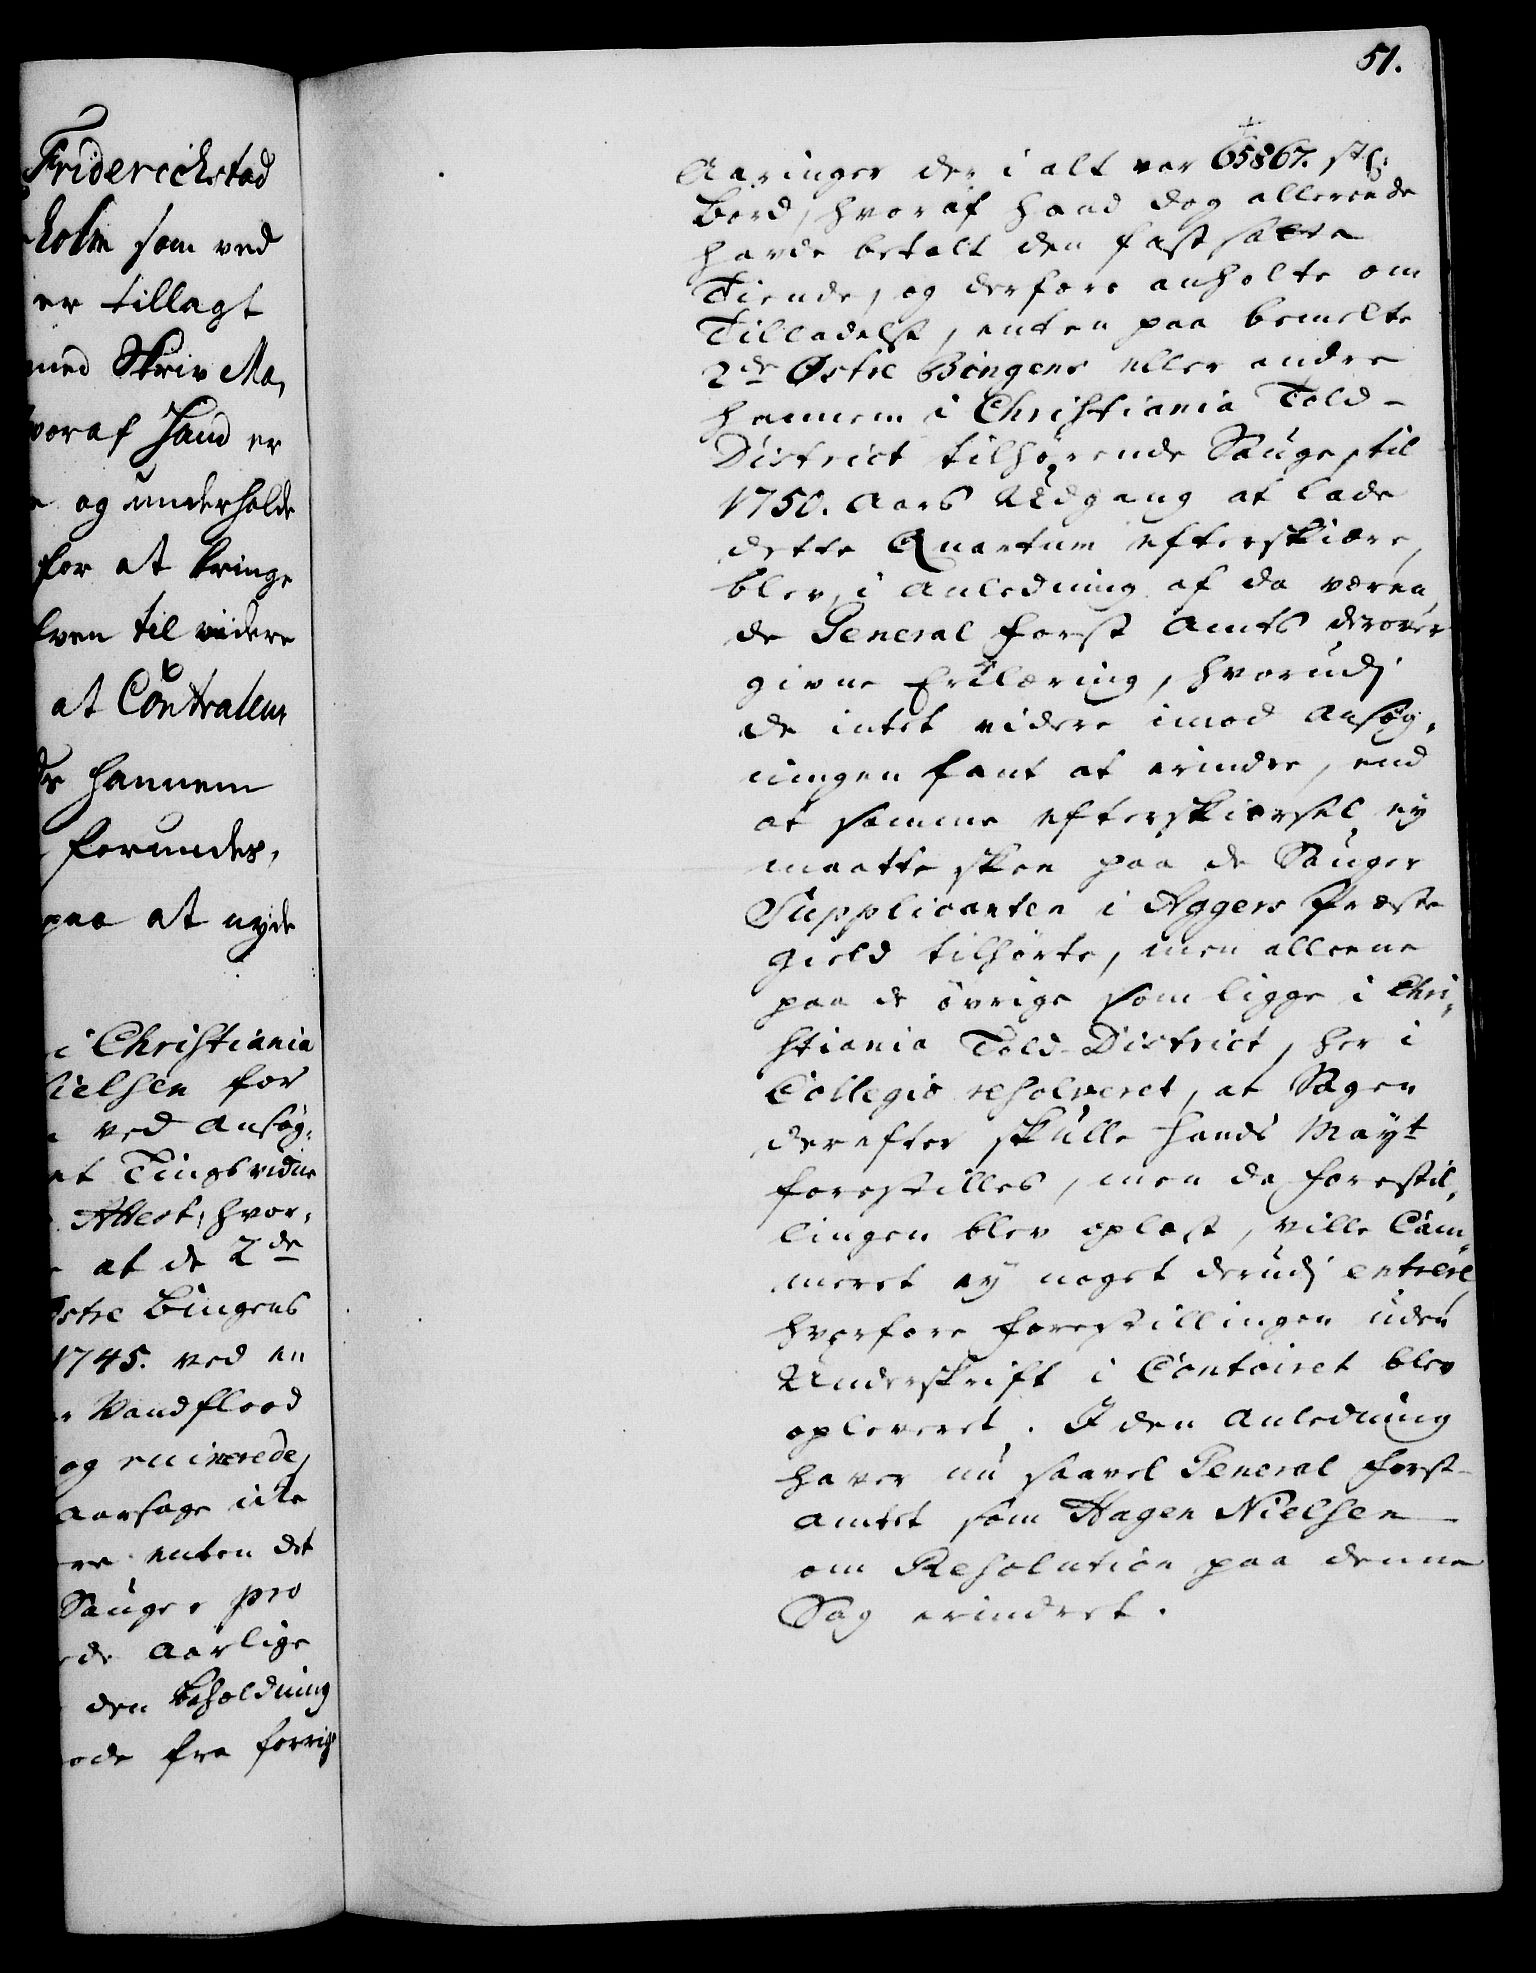 Friderichstad
holm som ved
er tillagt
med Skriv Ma,
hvoraf Hand er
og underholde
for at bringe
til videre
at Contraleur
hannem
forundes,
paa at nyde
i Christiania
Nielsen for
ved Ansøg:
et Tingsvidne
Attest, hvor:
at de 2de
Østre Bingens
1745. ved en
Vandflood
og ruinerede,
Aarsage icke
enten det
Sauge, pro
de Aarlige
den Beholdning
fra forrige
51.
Aaringer der i alt var 65867. stk:
Bord, hvoraf hand dog allereede
havde betalt den fastsatte
Tiende, og derfore anholte om
Tilladelse, enten paa bemelte
2de Østre Bingens eller andre
hannem i Christiania Told-
District tilhørende Sauge, til
1750. Aars Udgang at lade
dette Quantum efterskiære,
blev, i Anledning af da væren,
de General Forst Amts derover
givne Erklæring, hvorudj
de intet videre imod Ansøg,
ningen fant at erindre, end
at samme efterskiørsel ey
maatte skee paa de Sauger
Supplicanten i Aggers Præste
gield tilhørte, men alleene
paa de øvrige som ligge i Chri,
stiania Told-District, her i
Collegio resolveret, at Sagen
derefter skulle Hands Mayt
forestilles, men da Forestil,
lingen blev oplæst, ville Cam,
meret ey noget derudj entrere,
hvorfore Forestillingen uden
Underskrift i Contoiret blev
opleveret. I den Anledning
haver nu saavel General Forst-
amtet som Hagen Nielsen
om Resolution paa denne
Sag erindret.